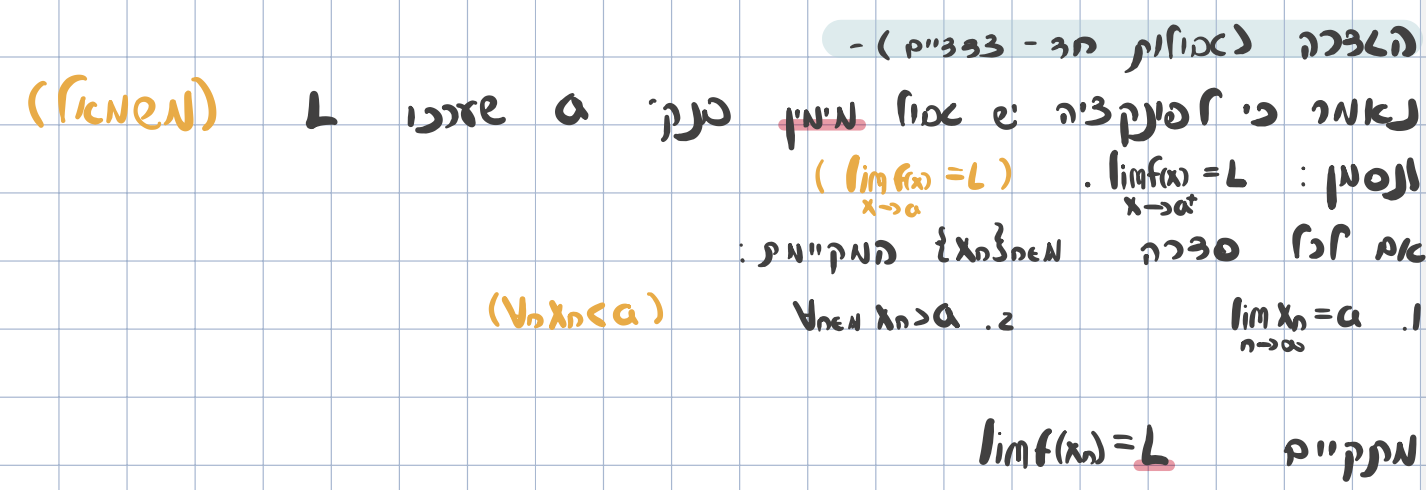 הגדרה (גבולות חד - צדדיים) -
נאמר כי לפונקציה יש גבול מימין בנק' a שערכו L (משמאל)
ונסמן : lim f(x) = L . ( lim f(x) = L )
x→a⁺ x→a
אם לכל סדרה {xn}n∈ℕ המקיימת :
1. lim xn = a 2. ∀n∈ℕ xn > a (∀n xn < a)
n→∞
מתקיים lim f(xn) = L